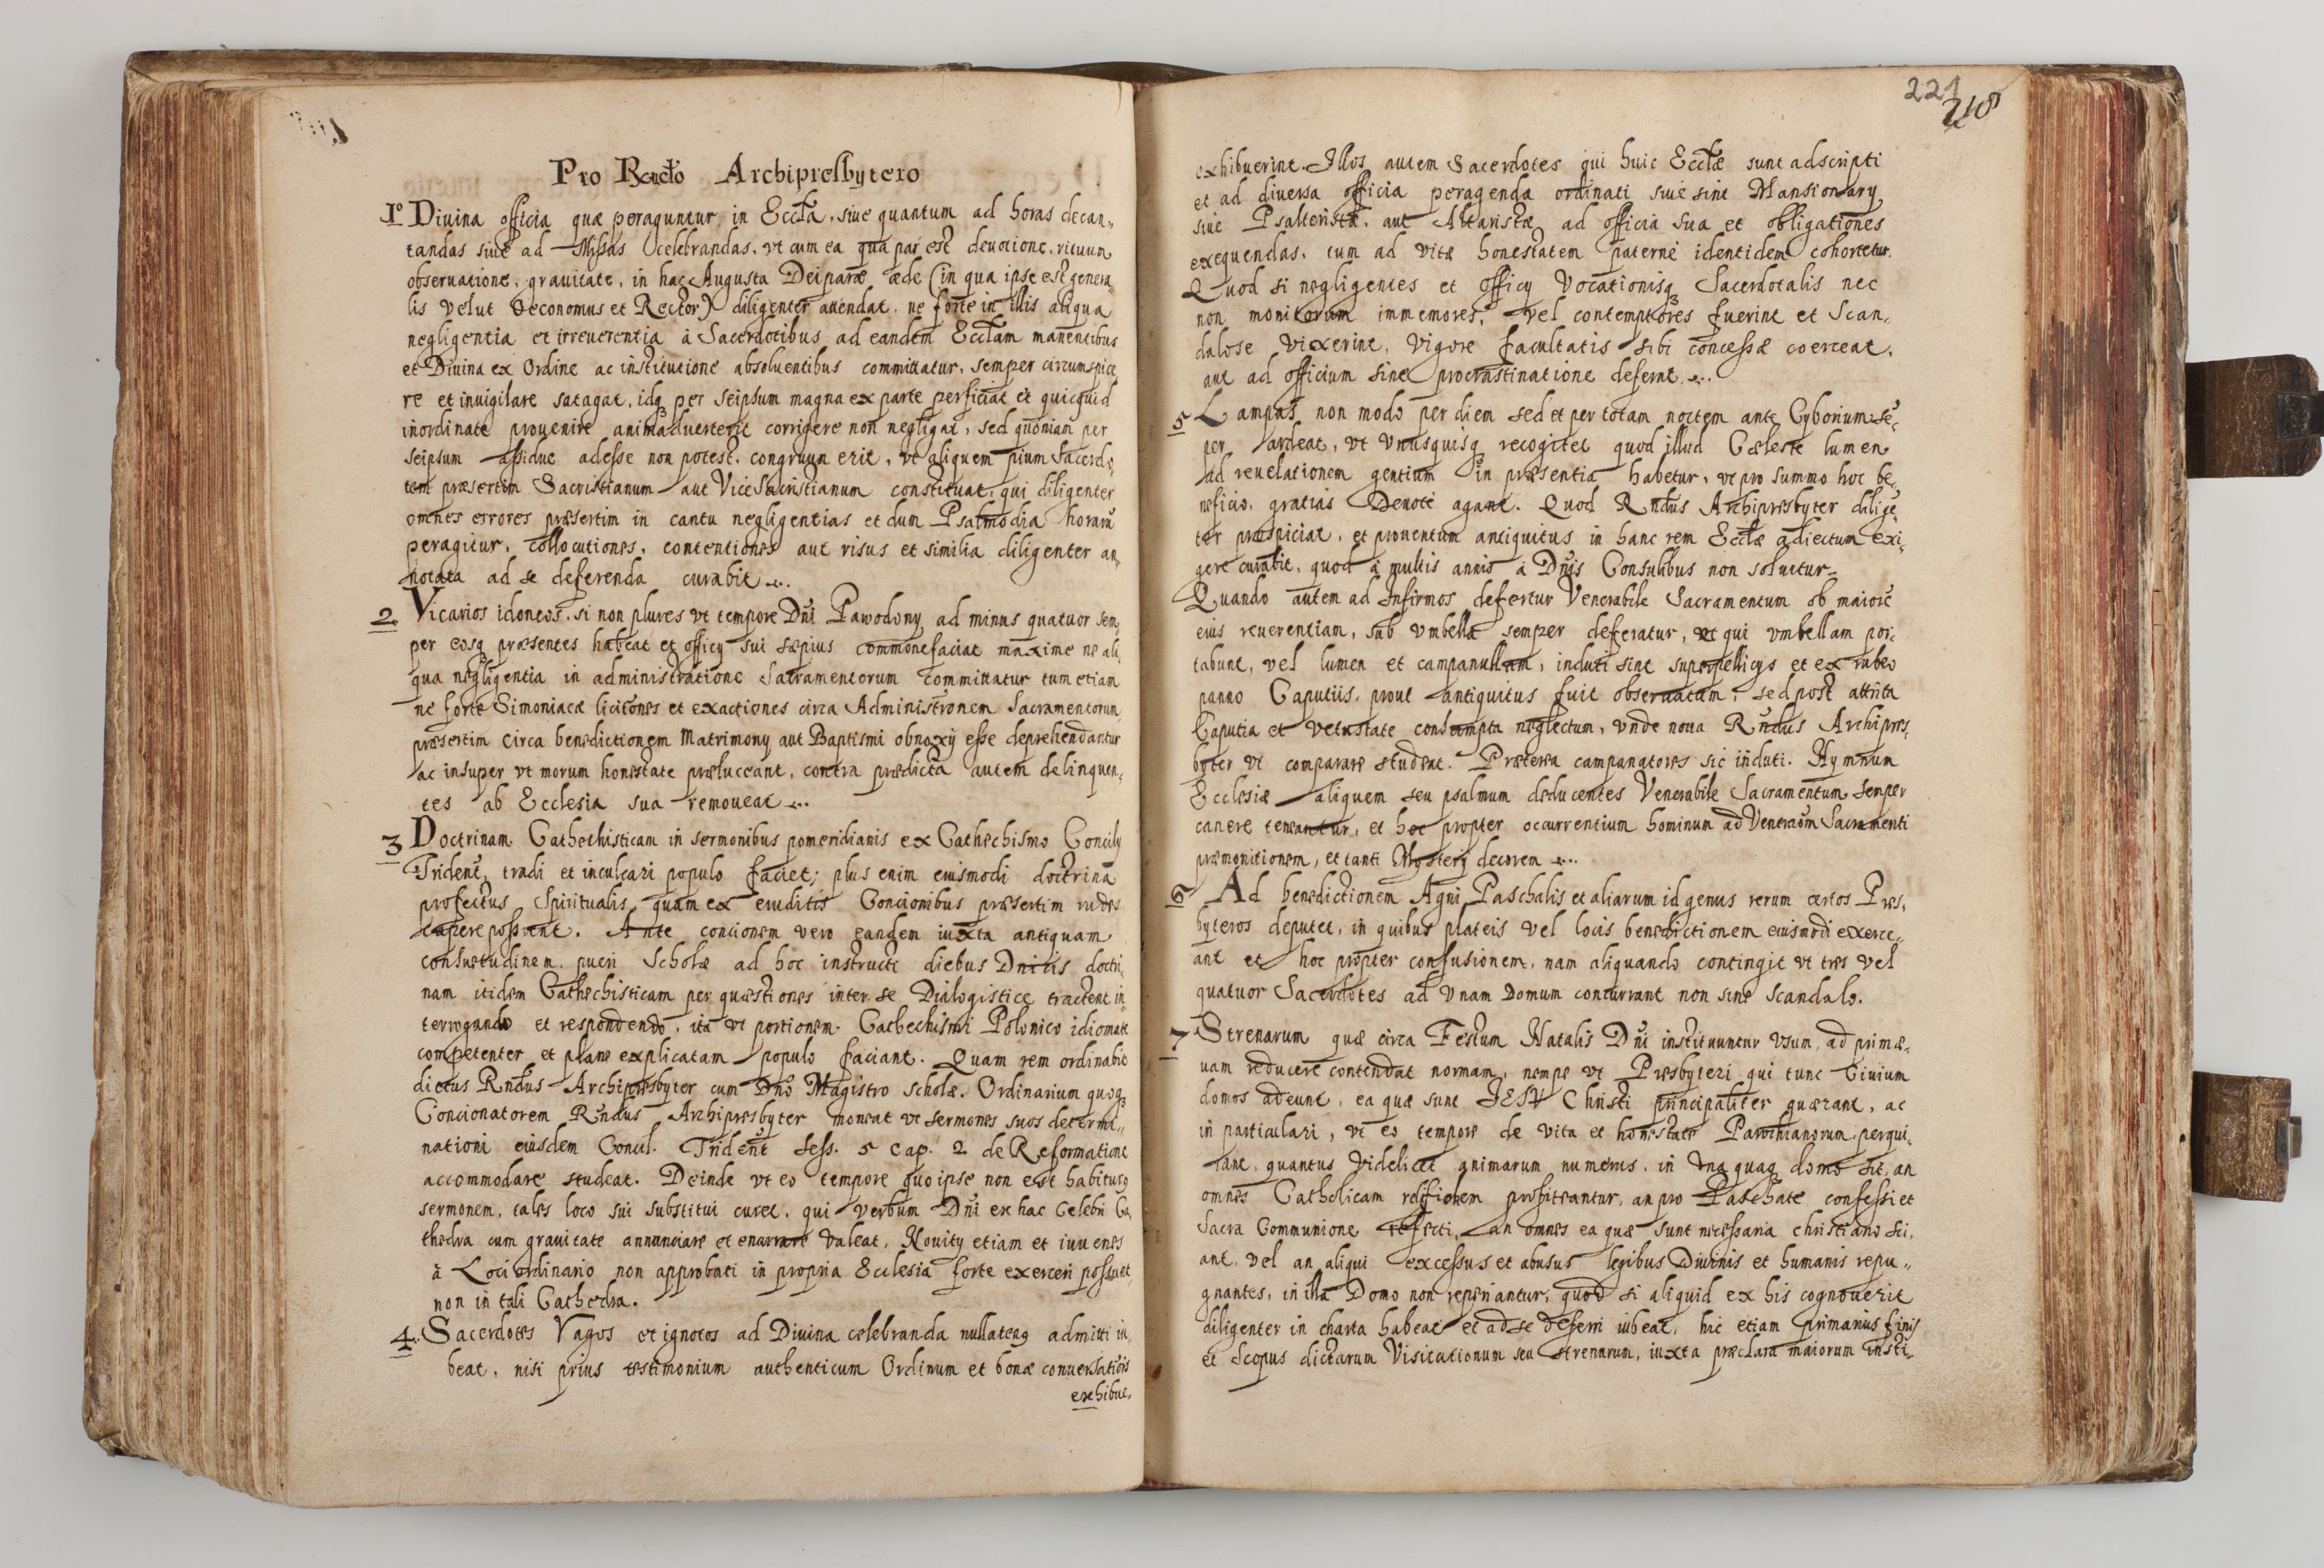 Pro Rndo Archipresbytero
1º Diuina officia quæ peraguntur in Eccła, siue quantum ad horas decan„
tandas siue ad Missas celebrandas, vt cum ea qua par est deuotione, rituum
obseruatione, grauitate, in hac Augusta Deiparæ æde (in qua ipse est genera„
lis velut Oeconomus et Rector) diligenter attendat, ne forte in illis aliqua
negligentia et irreuerentia à Sacerdotibus ad eandem Eccłam manentibus
et Diuina ex Ordine ac institutione absoluentibus committatur, semper circumspice„
re et inuigilare satagat, idq₃ per seipsum magna ex parte perficiat et quicquid
inordinate prouenire animaduerterit corrigere non negligat, sed quoniam per
seipsum assidue adesse non potest, congruum erit, vt aliquem pium Sacerdo„
tem præsertim Sacristianum aut ViceSacristianum constituat, qui diligenter
omnes errores præsertim in cantu negligentias et dum Psalmodia horarū
peragitur, collocutiones, contentiones aut risus et similia diligenter an„
notata ad se deferenda curabit.
2. Vicarios idoneos, si non plures vt tempore Dñi Pawodony ad minus quatuor sem„
per eosq₃ præsentes habeat et officy sui sæpius commonefaciat maxime ne ali„
qua negligentia in administratione Sacramentorum committatur tum etiam
ne forte Simoniacæ licitões et exactiones circa Administrõnem Sacramentorum,
præsertim circa benedictionem Matrimony aut Baptismi obnoxij esse deprehendantur
ac insuper vt morum honestate præluceant, contra prædicta autem delinquen„
tes ab Ecclesia sua remoueat.
3 Doctrinam Cathechisticam in sermonibus pomeridianis ex Cathechismo Concily
Trident. tradi et inculcari populo faciet; plus enim eiusmodi doctrina
profectus Spiritualis, quam ex eruditis Concionibus præsertim rudes
capere possent. Ante concionem vero eandem iuxta antiquam
consuetudinem, pueri Scholæ ad hoc instructi diebus Dnicis doctri„
nam itidem Cathechisticam per quæstiones inter se Dialogistice tractent in„
terrogando et respondendo, ita vt portionem Cathechismi Polonico idiomate
competenter et plane explicatam populo faciant. Quam rem ordinabit
dictus Rndus Archipresbyter cum Dño Magistro scholæ. Ordinarium quoq₃
Concionatorem Rndus Archipresbyter moneat vt sermones suos determi„
nationi eiusdem Concil. Trident sess. 5 cap. 2 de Reformatione
accommodare studeat. Deinde vt eo tempore quo ipse non est habiturus
sermonem, tales loco sui substitui curet, qui verbum Dñi ex hac Celebri Ca„
thedra cum grauitate annunciare et enarrare valeat, Nouity etiam et iuuenes
à Loci ordinario non approbati in propria Ecclesia forte exerceri possunt,
non in tali Cathedra.
4. Sacerdotes Vagos et ignotos ad Diuina celebranda nullateng admitti iu„
beat, nisi prius testimonium authenticum Ordinum et bonæ conuersatiõis
exhibue„
221
218
exhibuerint. Illos autem Sacerdotes qui huic Eccłæ sunt adscripti
et ad diuersa officia peragenda ordinati siue sint Mansionary
siue Psalteristæ, aut Altaristæ ad officia sua et obligationes
exequendas, tum ad vitæ honestatem paterne identidem cohortetur.
Quod si negligentes et officy Vocationisq₃ Sacerdotalis nec
non monitorum immemores, vel contemptores fuerint et Scan„
dalose vixerint, vigore facultatis sibi concessæ coerceat,
aut ad officium sine procrastinatione deferat.
5 Lampas non modo per diem sed et per totam noctem ante Cyborium sē„
per ardeat, vt vnusquisq₃ recogitet quod illud Cæleste lumen
ad reuelationem gentium in præsentia habetur, vt pro summo hoc be„
neficio, gratias Deuote agant. Quod Rndus Archipresbyter diligē„
ter prospiciat, et prouentum antiquitus in hanc rem Eccłæ adiectum exi„
gere curabit, quod à multis annis à Dñis Consulibus non soluitur.
Quando autem ad Infirmos defertur Venerabile Sacramentum ob maiorē
eius reuerentiam, sub vmbella semper deferatur, et qui vmbellam por„
tabunt, vel lumen et campanullam, induti sint superpellicys et ex rubeo
panno Caputiis, prout antiquitus fuit obseruatum, sed post attrita
Caputia et vetustate consumpta neglectum, vnde noua Rndus Archipres„
byter vt comparare studeat. Præterea campanatores sic induti. Hymnum
Ecclesiæ aliquem seu psalmum deducentes Venerabile Sacramentum semper
canere teneantur, et hoc propter occurrentium hominum ad Veneraõm Sacramenti
præmonitionem, et tanti Mystery decorem.
6 Ad benedictionem Agni Paschalis et aliarum id genus rerum certos Pres„
byteros deputet, in quibus plateis vel locis benedictionem eiusmodi exerce„
ant et hoc propter confusionem, nam aliquando contingit vt tres vel
quatuor Sacerdotes ad vnam Domum concurrant non sine scandalo.
7 Strenarum quæ circa Festum Natalis Dñi instituuntur vsum, ad primæ„
uam reducere contendat normam, nempe vt Presbyteri qui tunc Ciuium
domos adeunt, ea quæ sunt IESV Christi principaliter quærant, ac
in particulari, vt eo tempore de vita et honestate Parochianorum perqui„
rant, quantus videlicet animarum numerus, in vna quaq₃ domo sit, an
omnes Catholicam religionem profiteantur, an pro Paschate confessi et
Sacra Communione refecti, an omnes ea quæ sunt necessaria christiano sci„
ant, vel an aliqui excessus et abusus legibus Diuinis et humanis repu„
gnantes, in illa Domo non reperiantur, quod si aliquid ex his cognouerit
diligenter in charta habeat et ad se deferri iubeat, hic etiam primarius finis
et Scopus dictarum Visitationum seu strenarum, iuxta præclara maiorum insti„